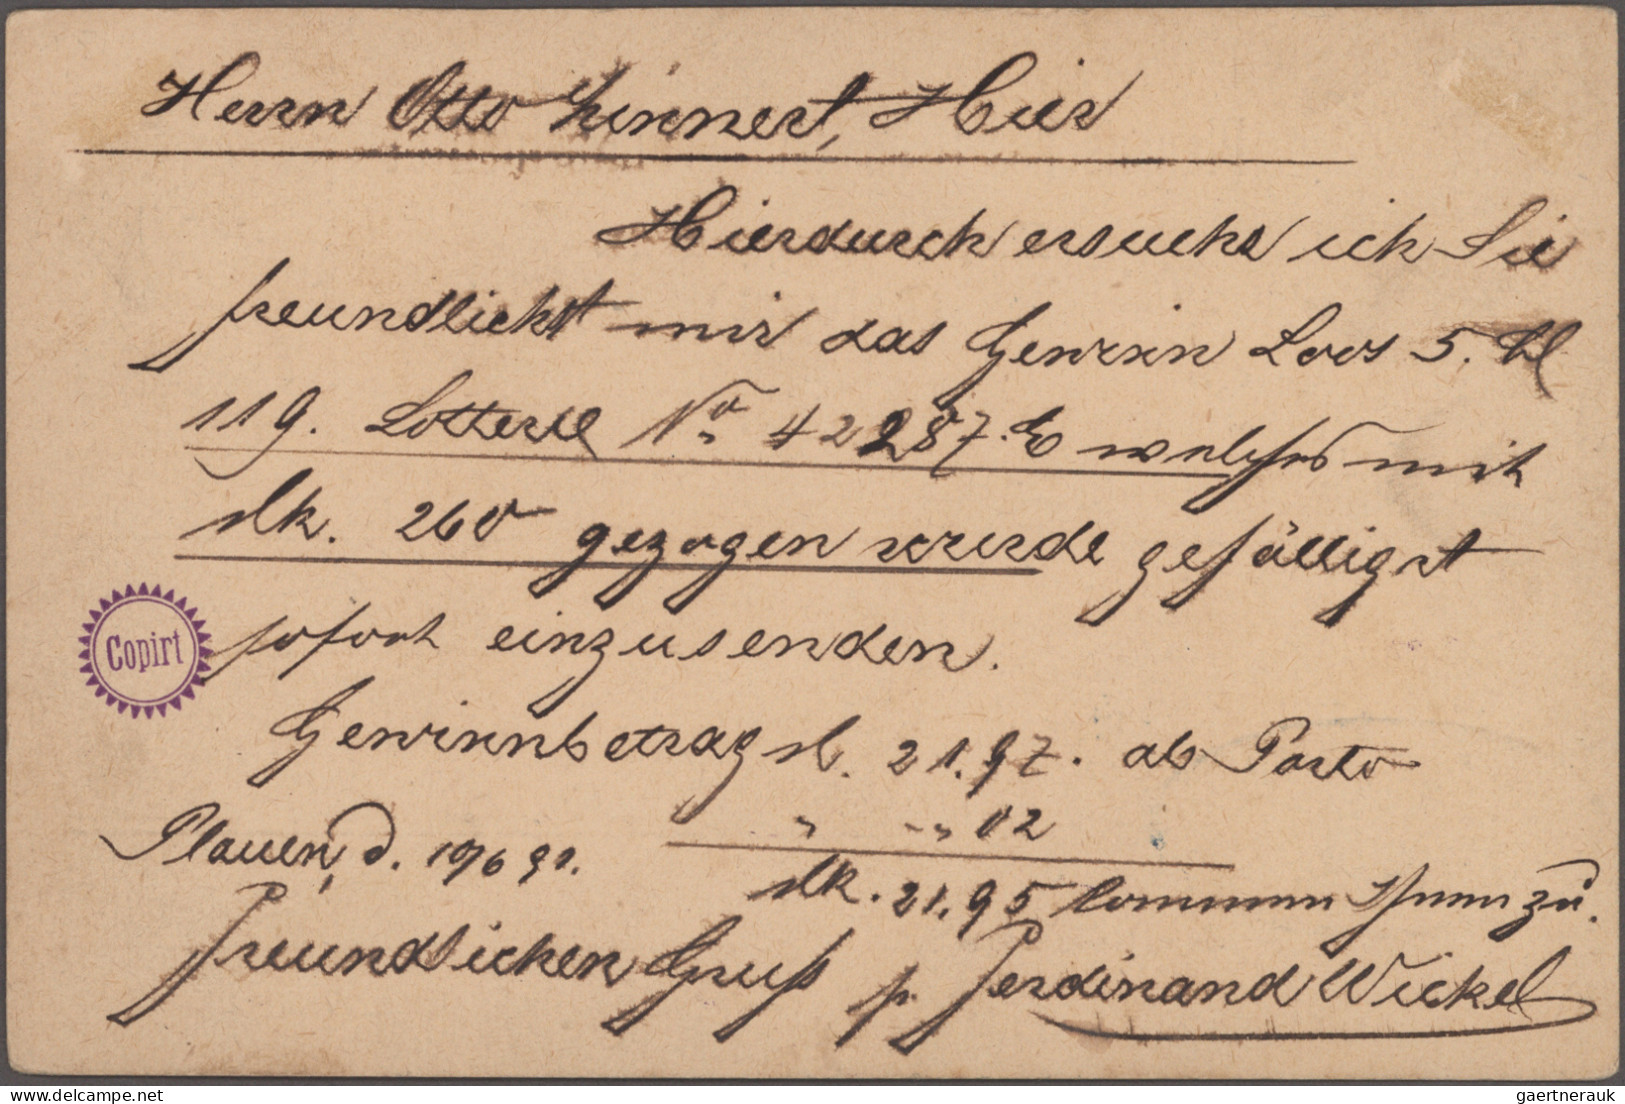 Herrn Otto Linnert, Hier
Hierdurch ersuche ich Sie
freundlichst mir das Gewinn Loos 5. Kl
119. Lotterie No 42287. E welches mit
Mk. 260 gezogen wurde gefälligst
sofort einzusenden.
Copirt
Gewinnbetrag M. 21.97. ab Porto
" " 02
Plauen, d. 10/6 91.
Mk. 21.95 kommen Ihnen zu.
Freundlichen Gruß p. Ferdinand Wickel
gaertnerauk